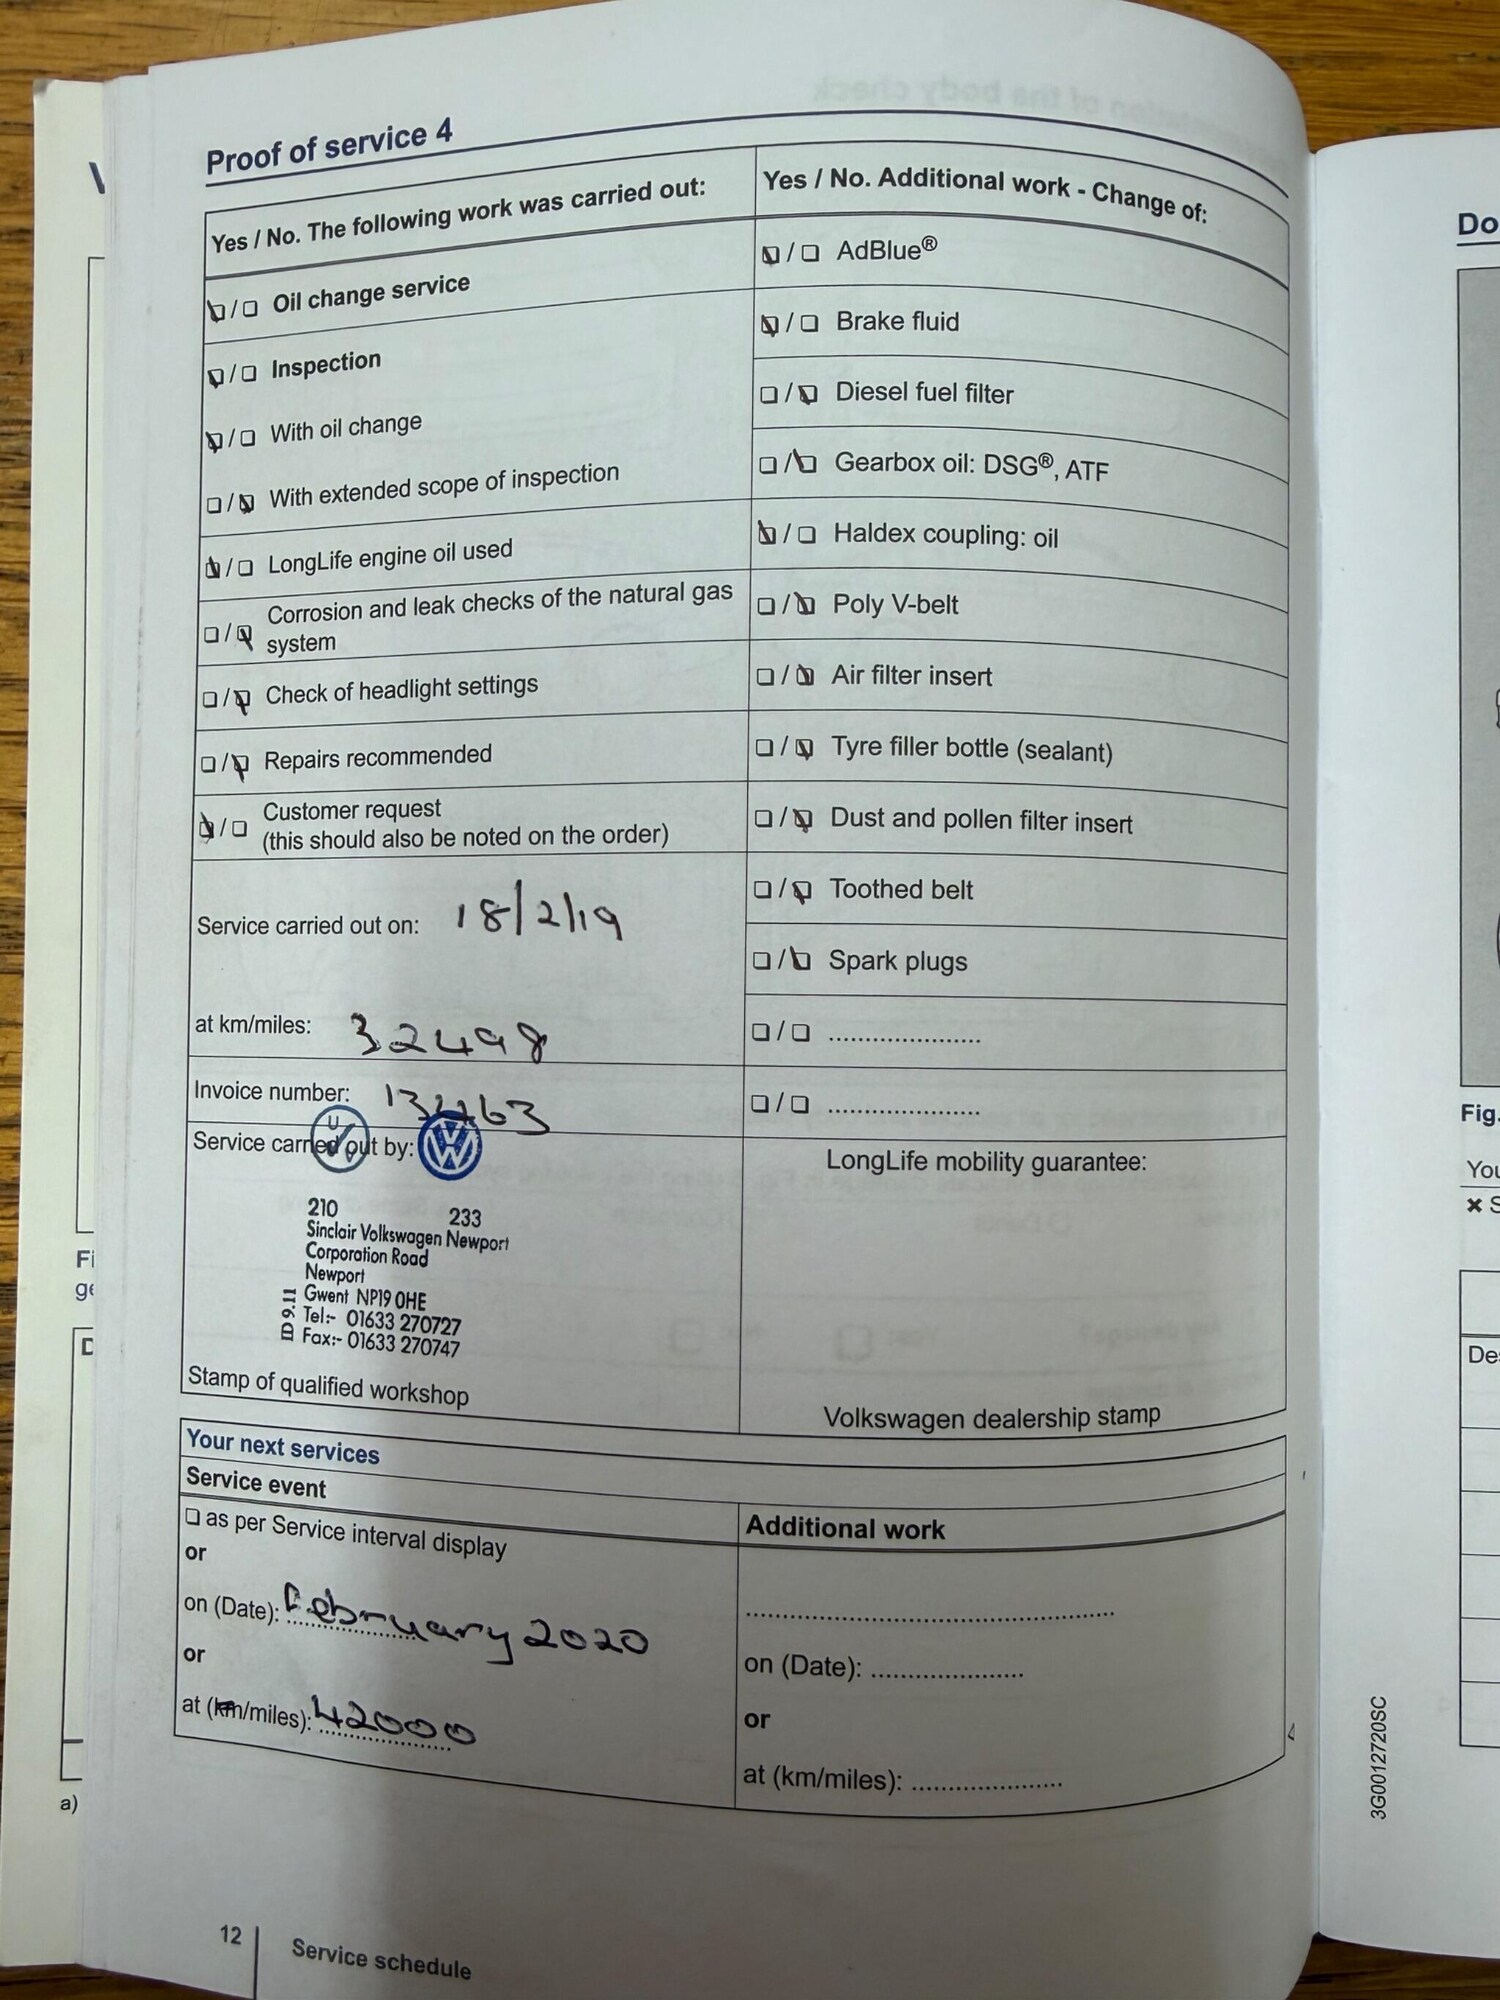 Proof of service 4
Yes / No. The following work was carried out:
☑ / ☐ Oil change service
☑ / ☐ Inspection
☑ / ☐ With oil change
☐ / ☑ With extended scope of inspection
☑ / ☐ LongLife engine oil used
☐ / ☑ Corrosion and leak checks of the natural gas
system
☐ / ☑ Check of headlight settings
☐ / ☑ Repairs recommended
☑ / ☐ Customer request
(this should also be noted on the order)
Service carried out on: 18/2/19
at km/miles: 32498
Invoice number: 13463
Service carried out by:
210 233
Sinclair Volkswagen Newport
Corporation Road
Newport
Gwent NP19 0HE
Tel:- 01633 270727
Fax:- 01633 270747
Stamp of qualified workshop
Yes / No. Additional work - Change of:
☑ / ☐ AdBlue®
☑ / ☐ Brake fluid
☐ / ☑ Diesel fuel filter
☐ / ☑ Gearbox oil: DSG®, ATF
☑ / ☐ Haldex coupling: oil
☐ / ☑ Poly V-belt
☐ / ☑ Air filter insert
☐ / ☑ Tyre filler bottle (sealant)
☐ / ☑ Dust and pollen filter insert
☐ / ☑ Toothed belt
☐ / ☑ Spark plugs
☐ / ☐ .....................
☐ / ☐ .....................
LongLife mobility guarantee:
Volkswagen dealership stamp
Your next services
Service event
☐ as per Service interval display
or
on (Date): February 2020
or
at (km/miles): 42000
Additional work
on (Date): .....................
or
at (km/miles): .....................
12
Service schedule
a)
Do
Fig.
You
3G0012720SC